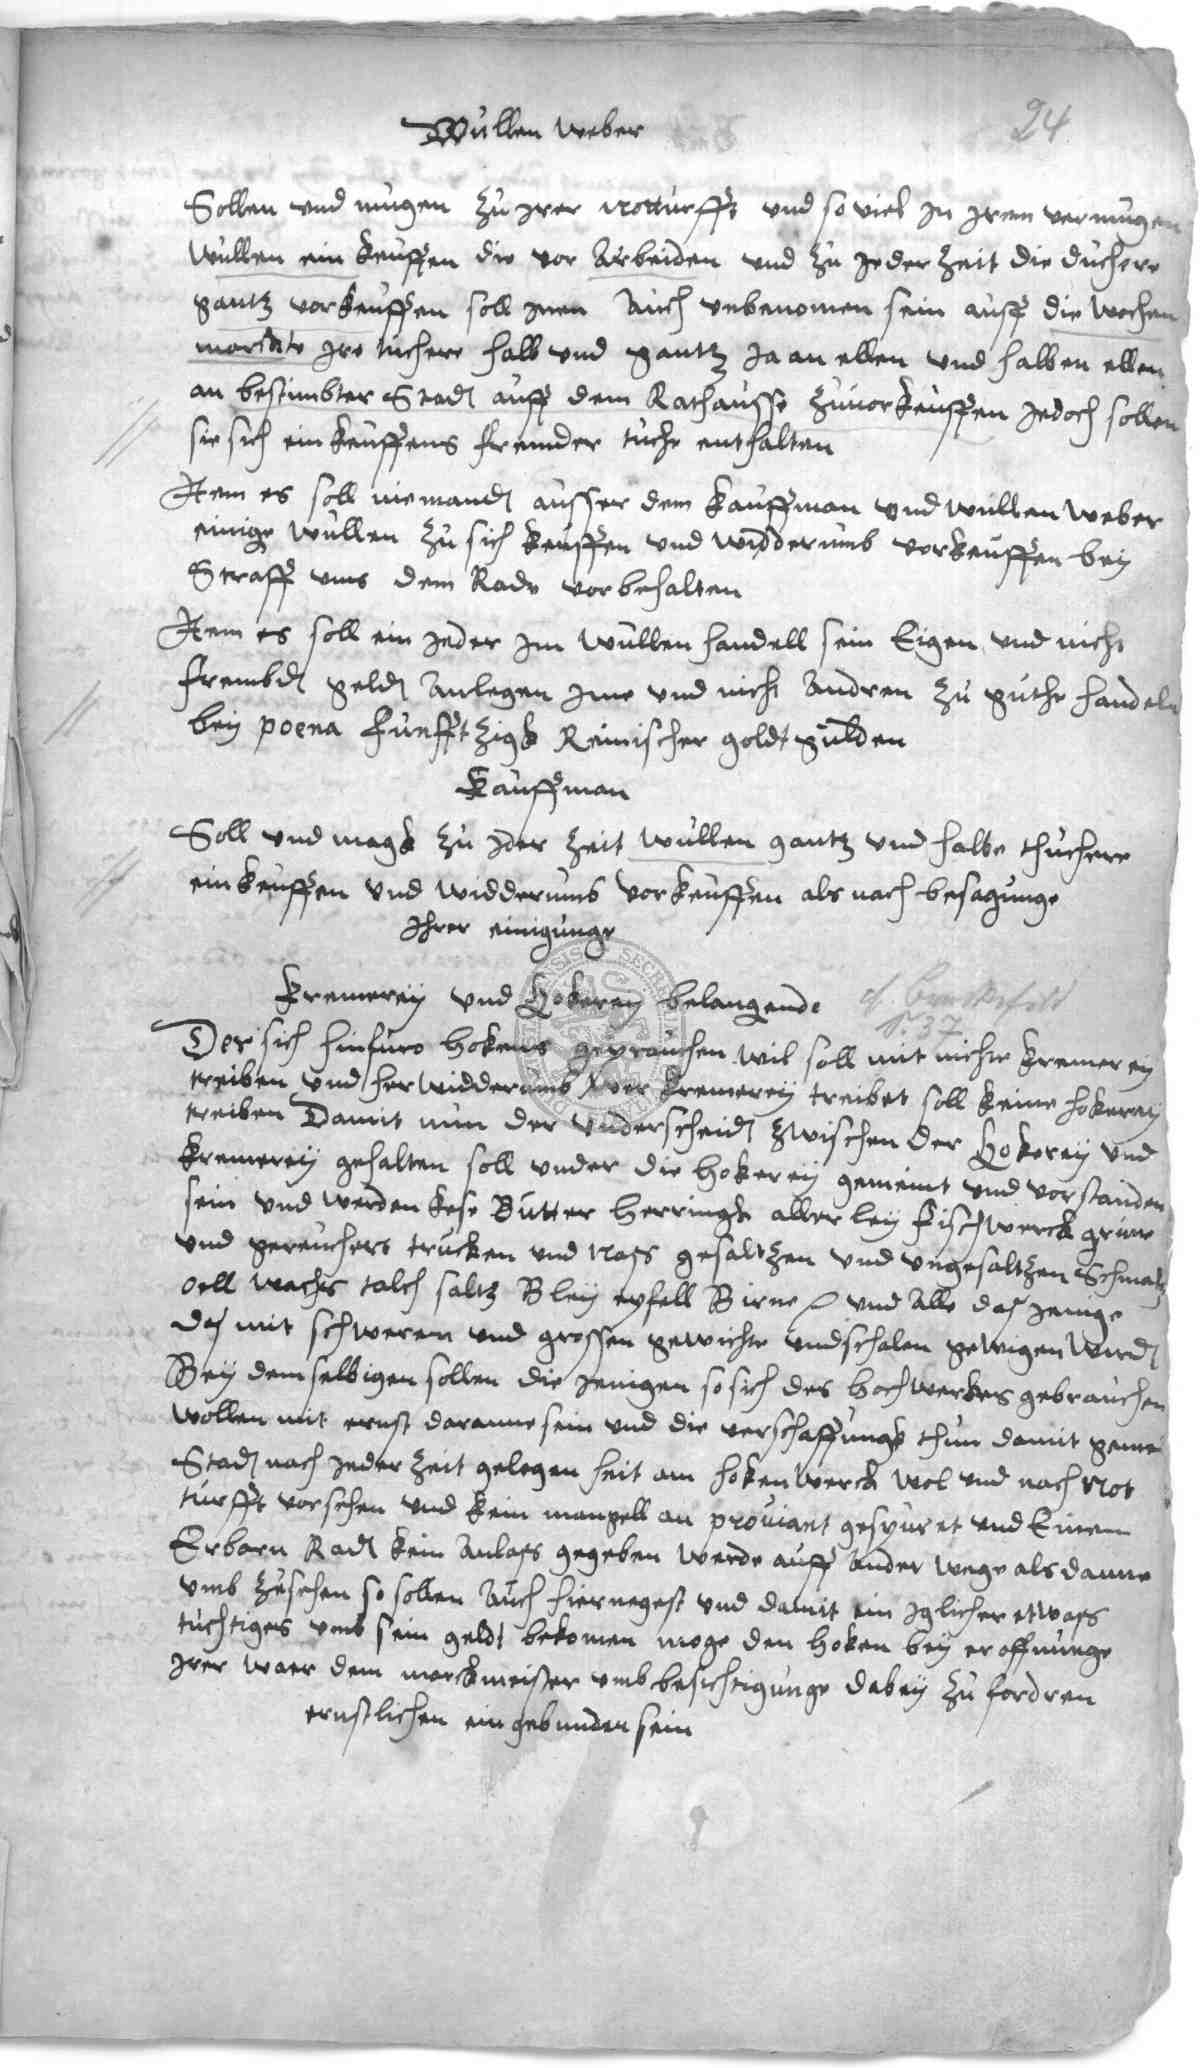 24
Wullen weber
Sollen vnd mugen zu irer notturfft vnd so viel in irem vermugen
wullen ein keuffen die vor arbeiden vnd zu jeder zeit die duchere
gantz vorkeuffen soll inen auch vnbenomen sein auff die wochen
marckte ire tuchere halb vnd gantz ja an ellen vnd halben ellen
an bestimbter Stadt auff dem Rathausse zuuorkeuffen jedoch sollen
sie sich ein keuffens fremder tuche enthalten
Item es soll niemandt ausser dem kauffman vnd wullen weber
einige wullen zu sich keuffen vnd widderumb vorkeuffen bey
Straff vns dem Rade vorbehalten
Item es soll ein jeder im wullen handell sein Eigen vnd nicht
frembdt geldt anlegen ime vnd nicht andren zu guthe handeln
bey poena funfftzigk Reinischer goldt gulden
Kauffman
Soll vnd magk zu jder zeit wullen gantz vnd halbe thuchere
einkeuffen vnd widderumb vorkeuffen als nach besagunge
Ihrer einigunge
Kremerey vnd Hokerey belangende
S. 37
Der sich hinfuro hokens geprauchen wil soll mit nichte kremerey
treiben vnd herwidderumb wer kremerey treibet soll keine hokerey
treiben Damit nun der vnderscheidt zwischen der Hokerey vnd
kremerey gehalten soll vnder die hokerey gemeint vnd vorstanden
sein vnd werden kese Butter herringk allerley fischwerck grune
vnd gereuchert trucken vnd nass gesaltzen vnd vngesaltzen Schmaltz
oell wachs talch saltz Bley epfell Birne vnd alle das jenige
das mit schweren vnd grossen gewichte vnd schalen gewigen wirdt
Bey demselbigen sollen die jenigen so sich des hochwerkes gebrauchen
wollen mit ernst daranne sein vnd die verschaffungk thun damit gemei
Stadt nach jeder zeit gelegenheit am hokenwerck wol vnd nach not
turfft vorsehen vnd kein mangell an prouiant gespuret vnd Einem
Erbarn Radt kein anlass gegeben werde auff ander wege als danne
vmb zusehen so sollen auch hiernegest vnd damit ein iglicher etwass
tuchtiges vmb sein geldt bekomen moge den hoken bey eroffnunge
irer waer dem marckmeister vmb besichtigunge dabey zu fordren
ernstlichen eingebunden sein